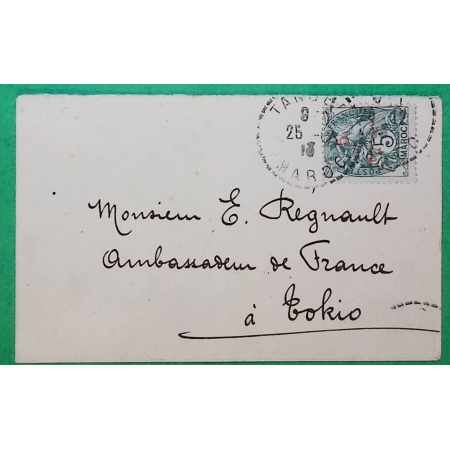 TANGER
8
25
13
MAROC
5
MAROC
POSTES
Monsieur E. Regnault
Ambassadeur de France
à Tokio